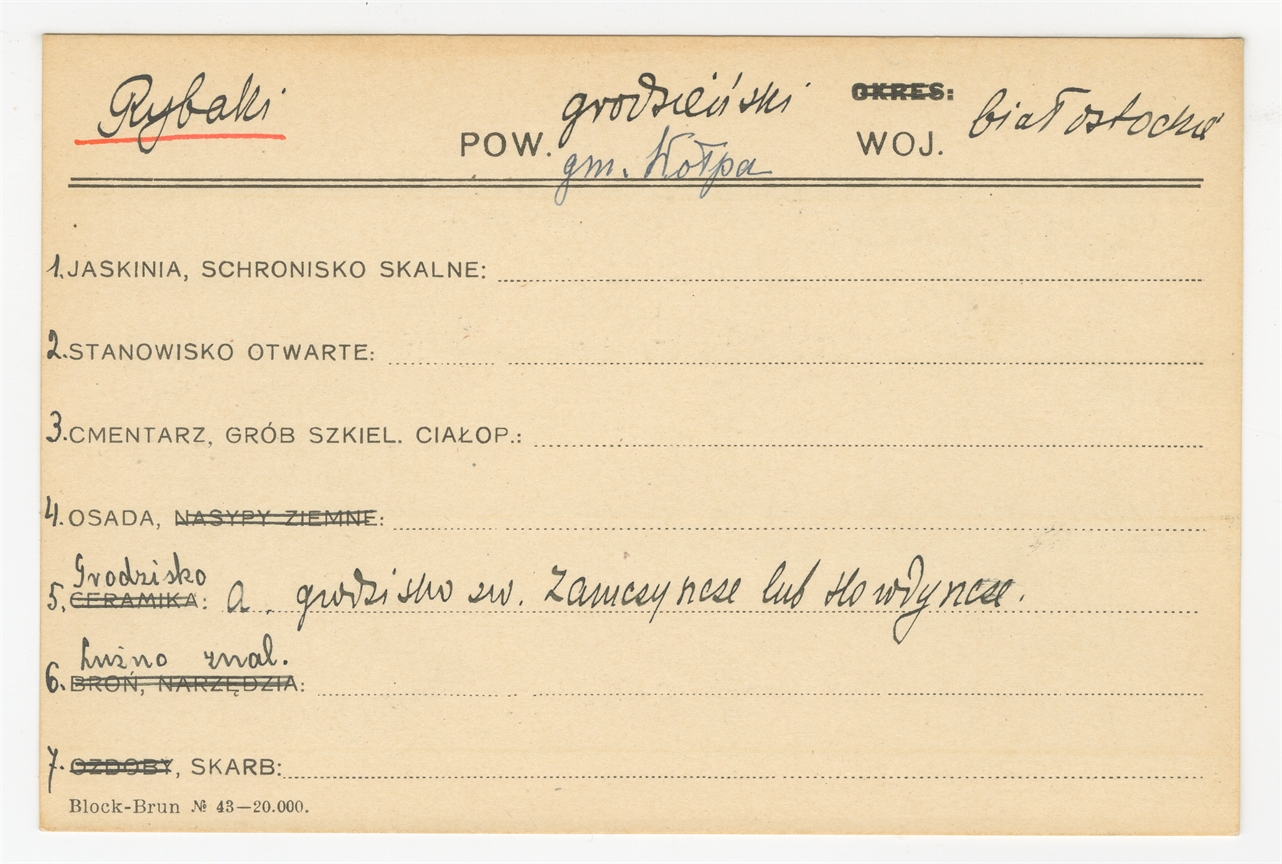 Rybaki POW. grodzieński OKRES: WOJ. białostockie
gm. Wołpa
1. JASKINIA, SCHRONISKO SKALNE:
2. STANOWISKO OTWARTE:
3. CMENTARZ, GRÓB SZKIEL. CIAŁOP.:
4. OSADA, NASYPY ZIEMNE:
Grodzisko
5. CERAMIKA: a. grodzisko zw. Zamczyncze lub
Luźno znal.
6. BROŃ, NARZĘDZIA:
7. OZDOBY, SKARB:
Block-Brun № 43—20.000.